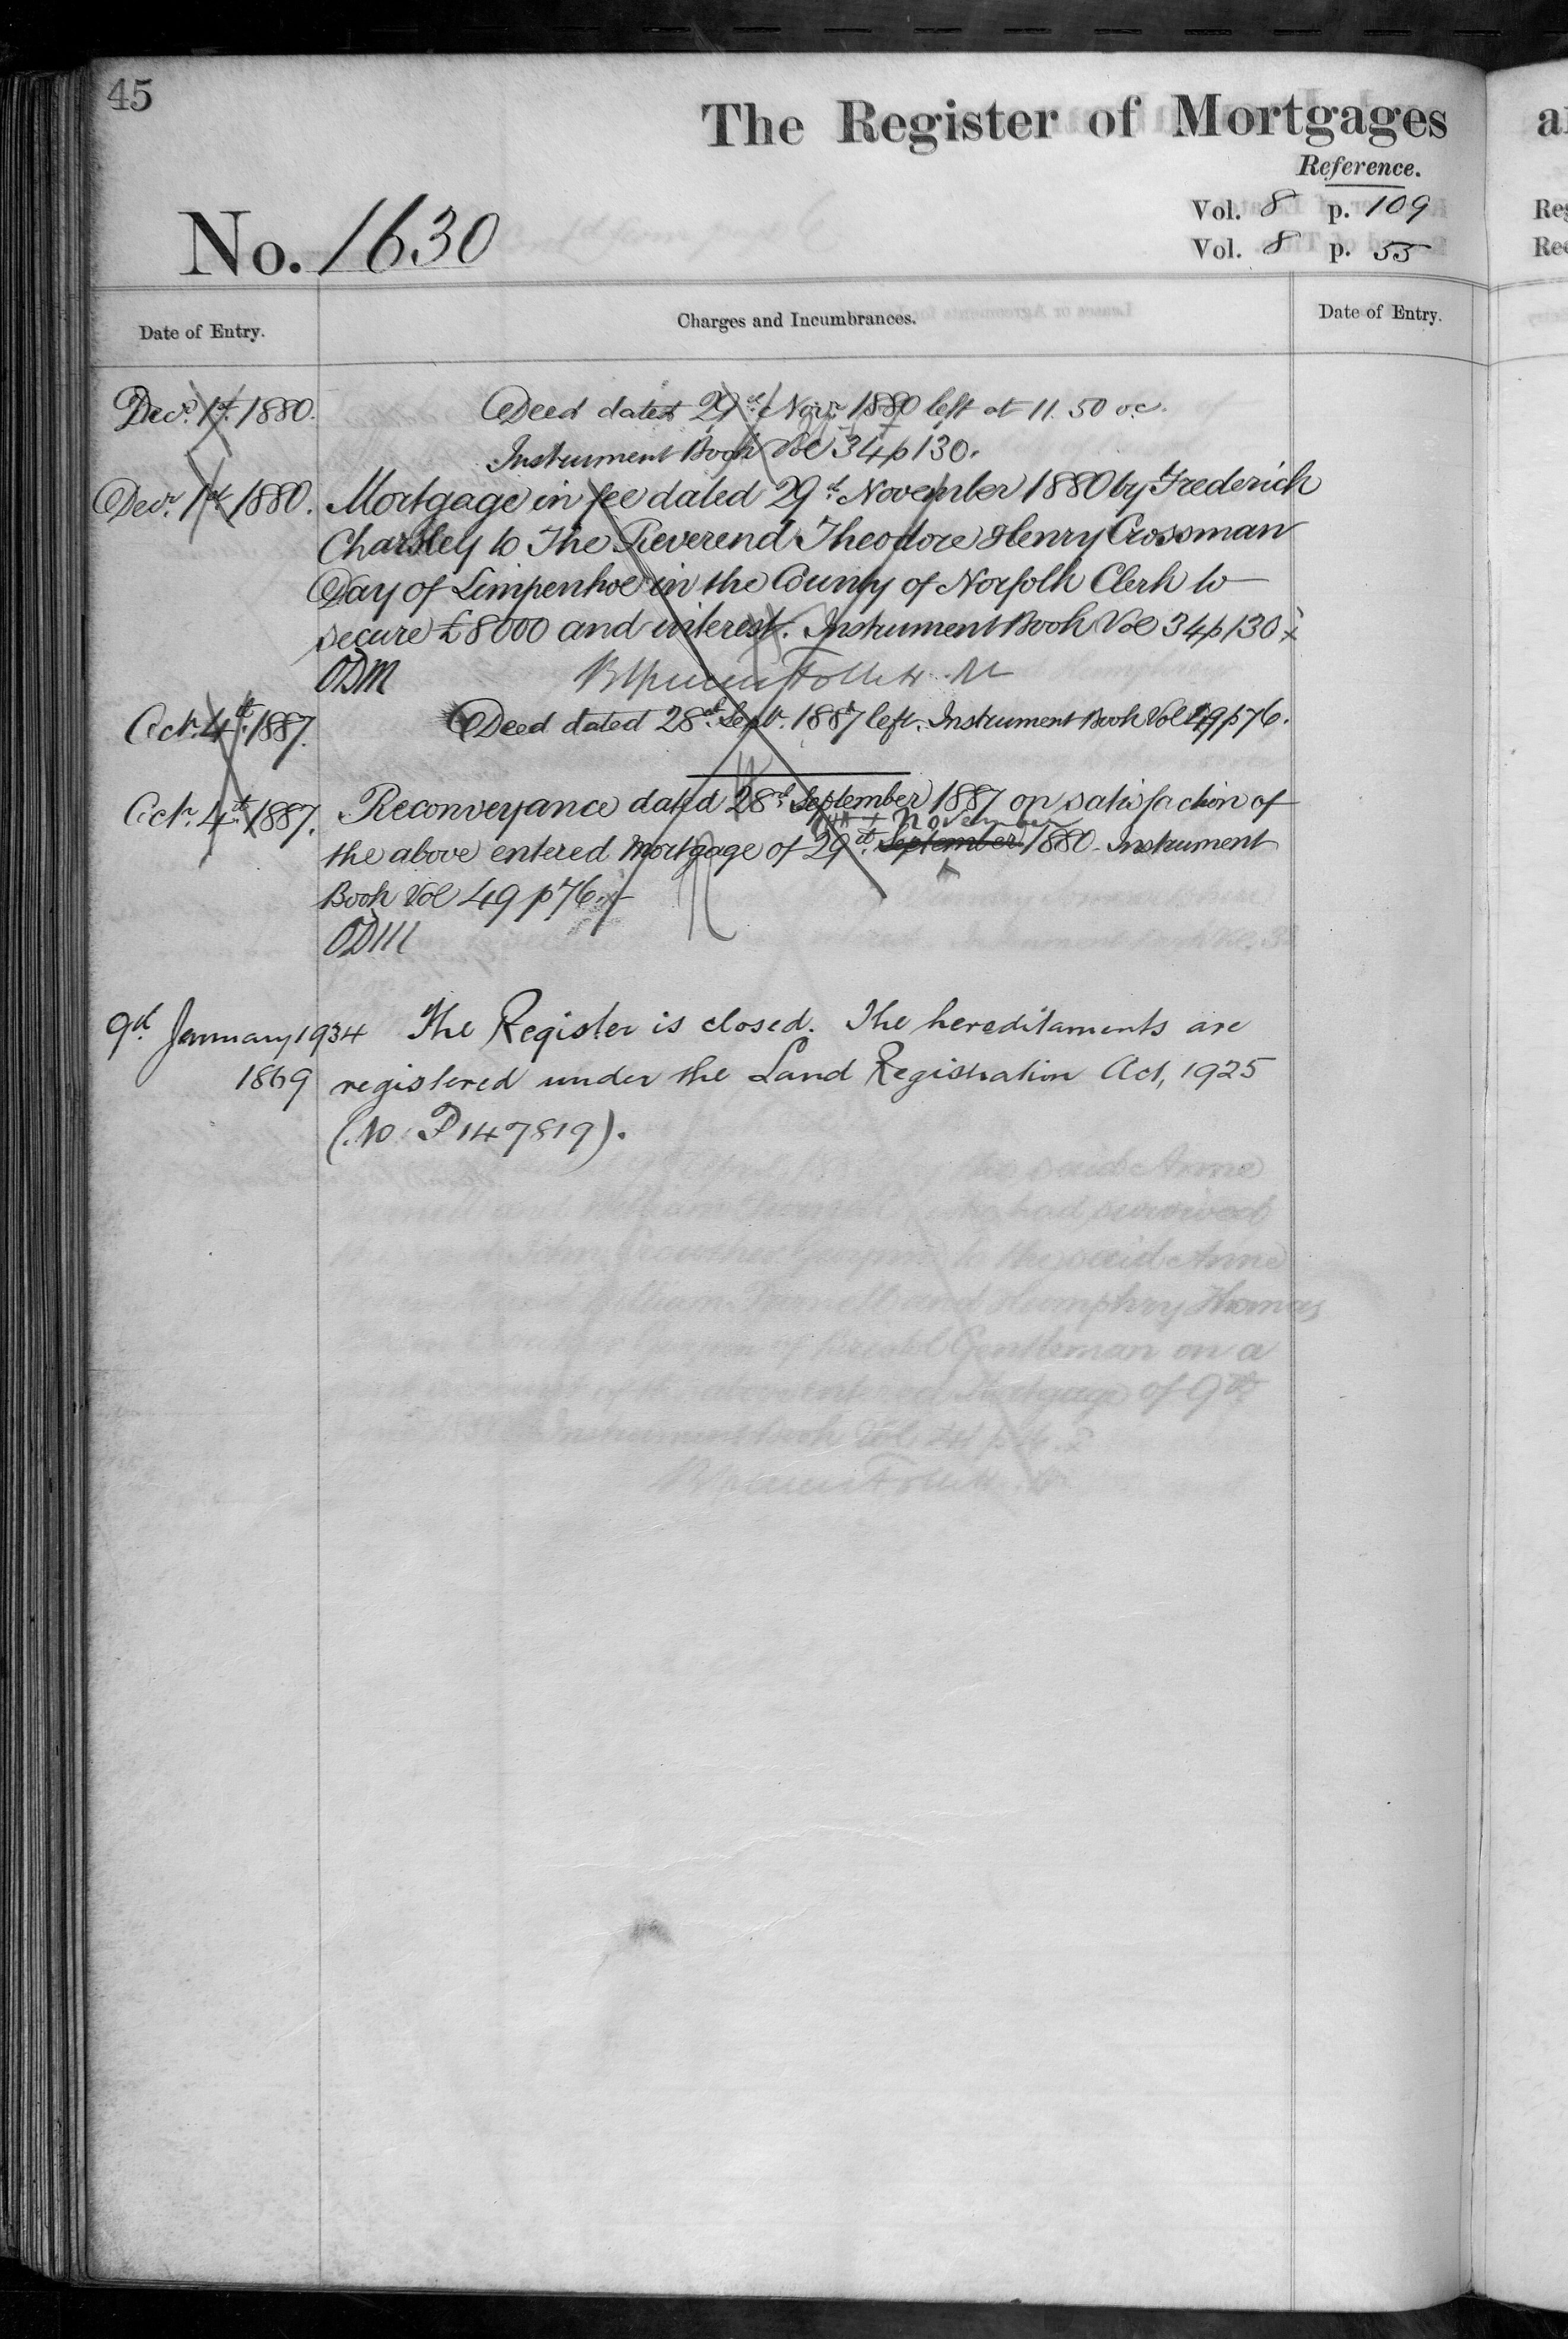 45
The Register of Mortgages
Reference.
Vol. 8 p. 109
No. 1630
Vol. 8 p. 55
Date of Entry.
Charges and Incumbrances.
Date of Entry.
Decr. 1st 1880. Deed dated 29th Novr. 1880 left at 11.50 oc.
Instrument Book Vol 34 p 130.
Decr. 1st 1880. Mortgage in fee dated 29th November 1880 by Frederick
Charsley to The Reverend Theodore Henry Crossman
Day of Limpenhoe in the County of Norfolk Clerk to
secure £8000 and interest. Instrument Book Vol 34 p 130
ODM
Octr. 4th 1887. Deed dated 28th Septr. 1887 left. Instrument Book Vol 49 p 76.
Octr. 4th 1887. Reconveyance dated 28th September 1887 on satisfaction of
November
the above entered Mortgage of 29th September 1880. Instrument
Book Vol 49 p 76.
ODM
9th January 1934 The Register is closed. The hereditaments are
1869 registered under the Land Registration Act, 1925
(No. P147819).
a
Re
Re